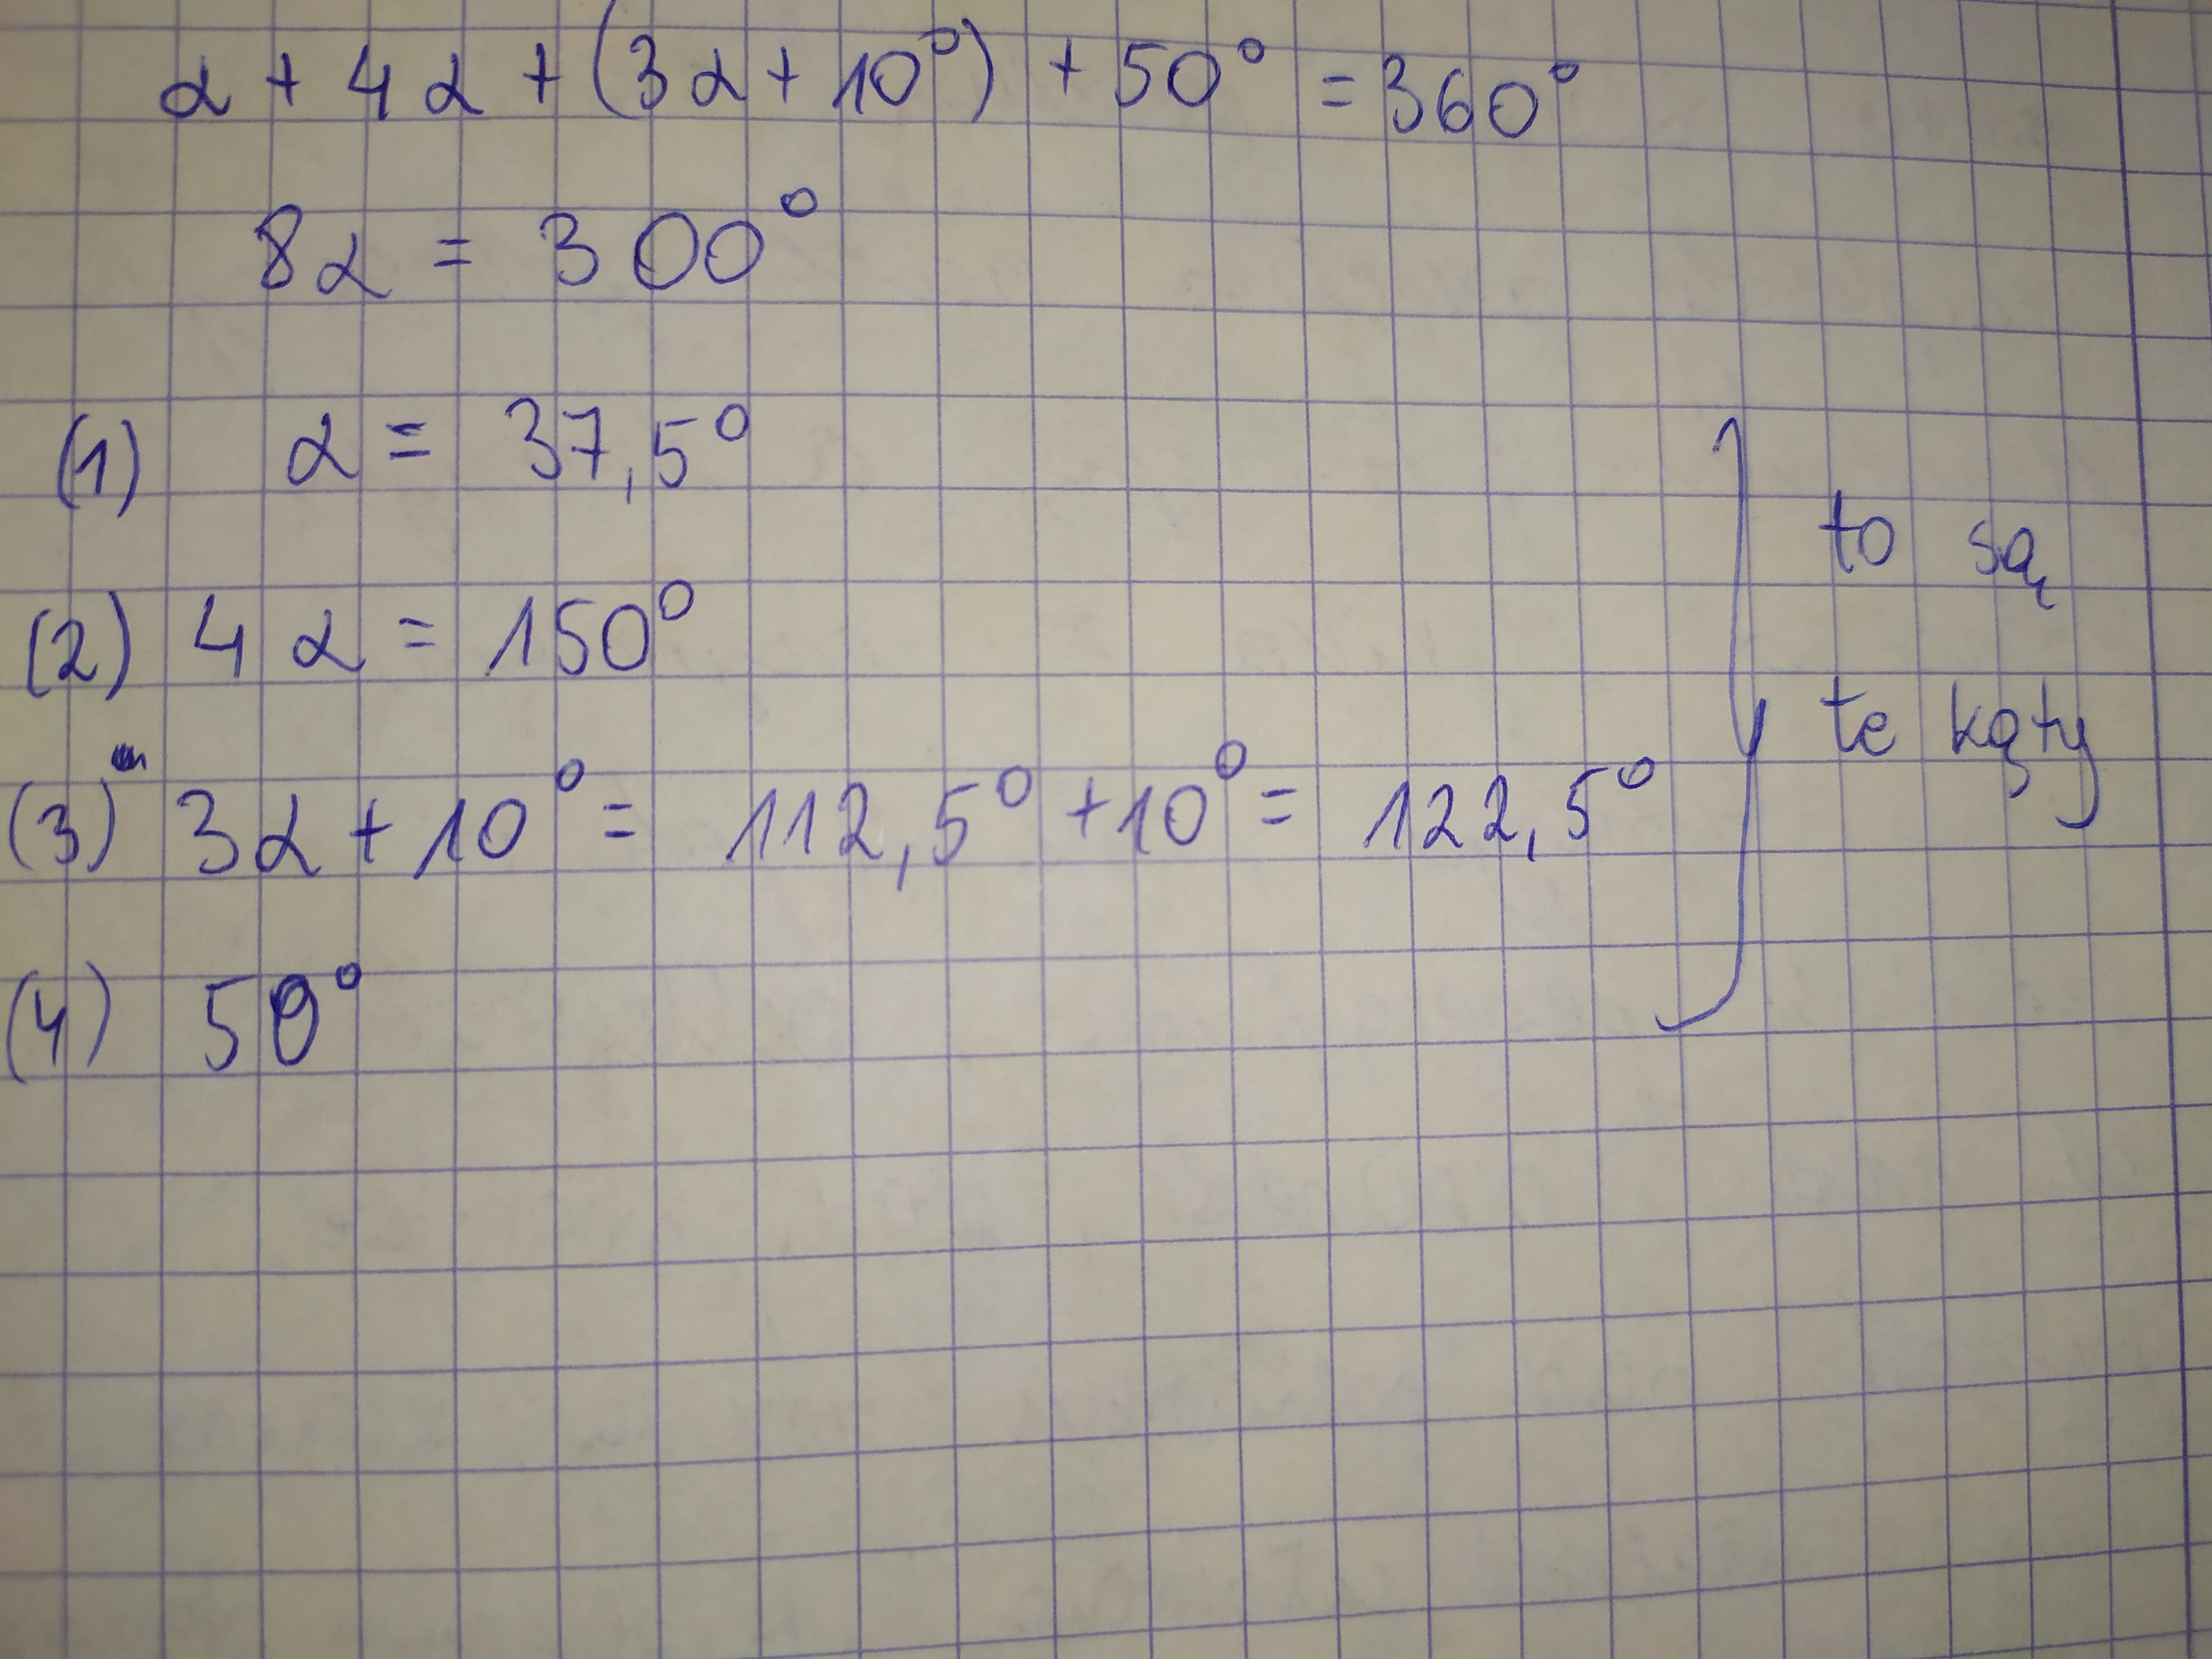 α + 4α + (3α + 10°) + 50° = 360°
8α = 300°
(1) α = 37,5°
(2) 4α = 150°
(3) 3α + 10° = 112,5° + 10° = 122,5°
(4) 50°
to są
te kąty